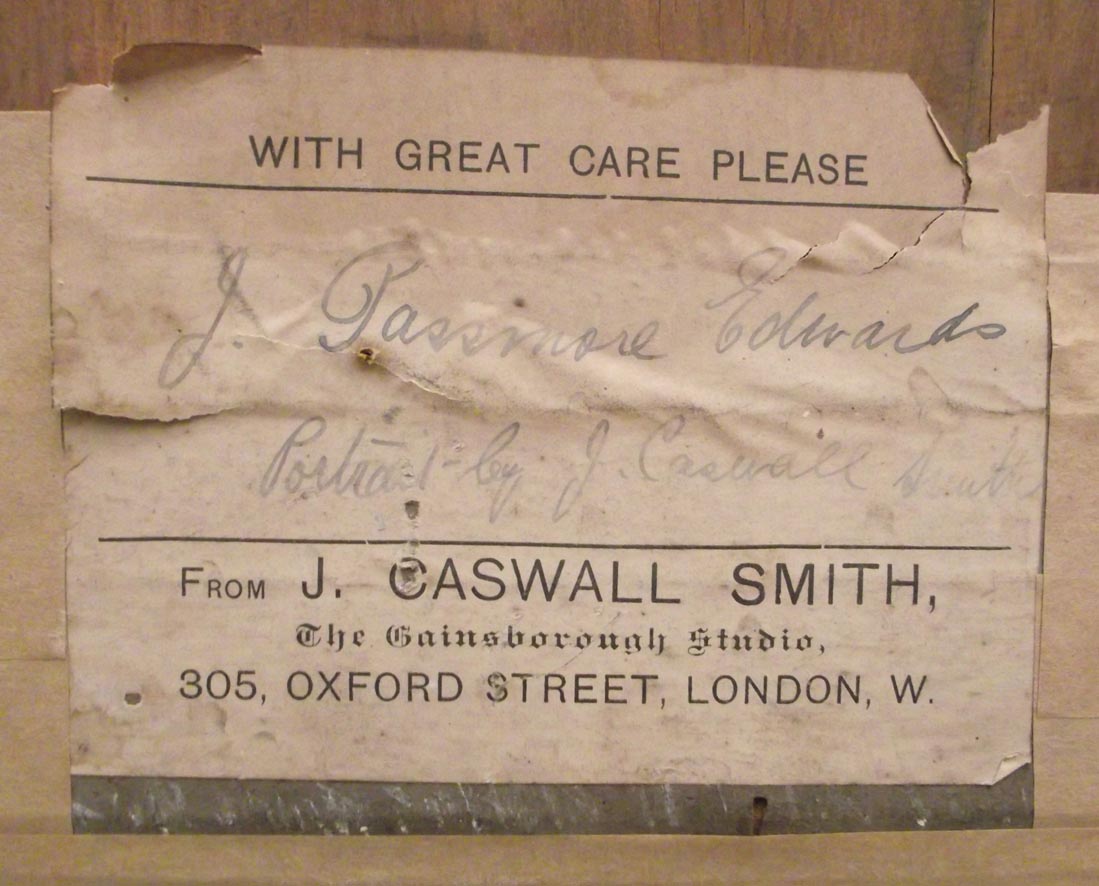 WITH GREAT CARE PLEASE
J. Passmore Edwards
Portrait by J. Caswall Smith
FROM J. CASWALL SMITH,
The Gainsborough Studio,
305, OXFORD STREET, LONDON, W.